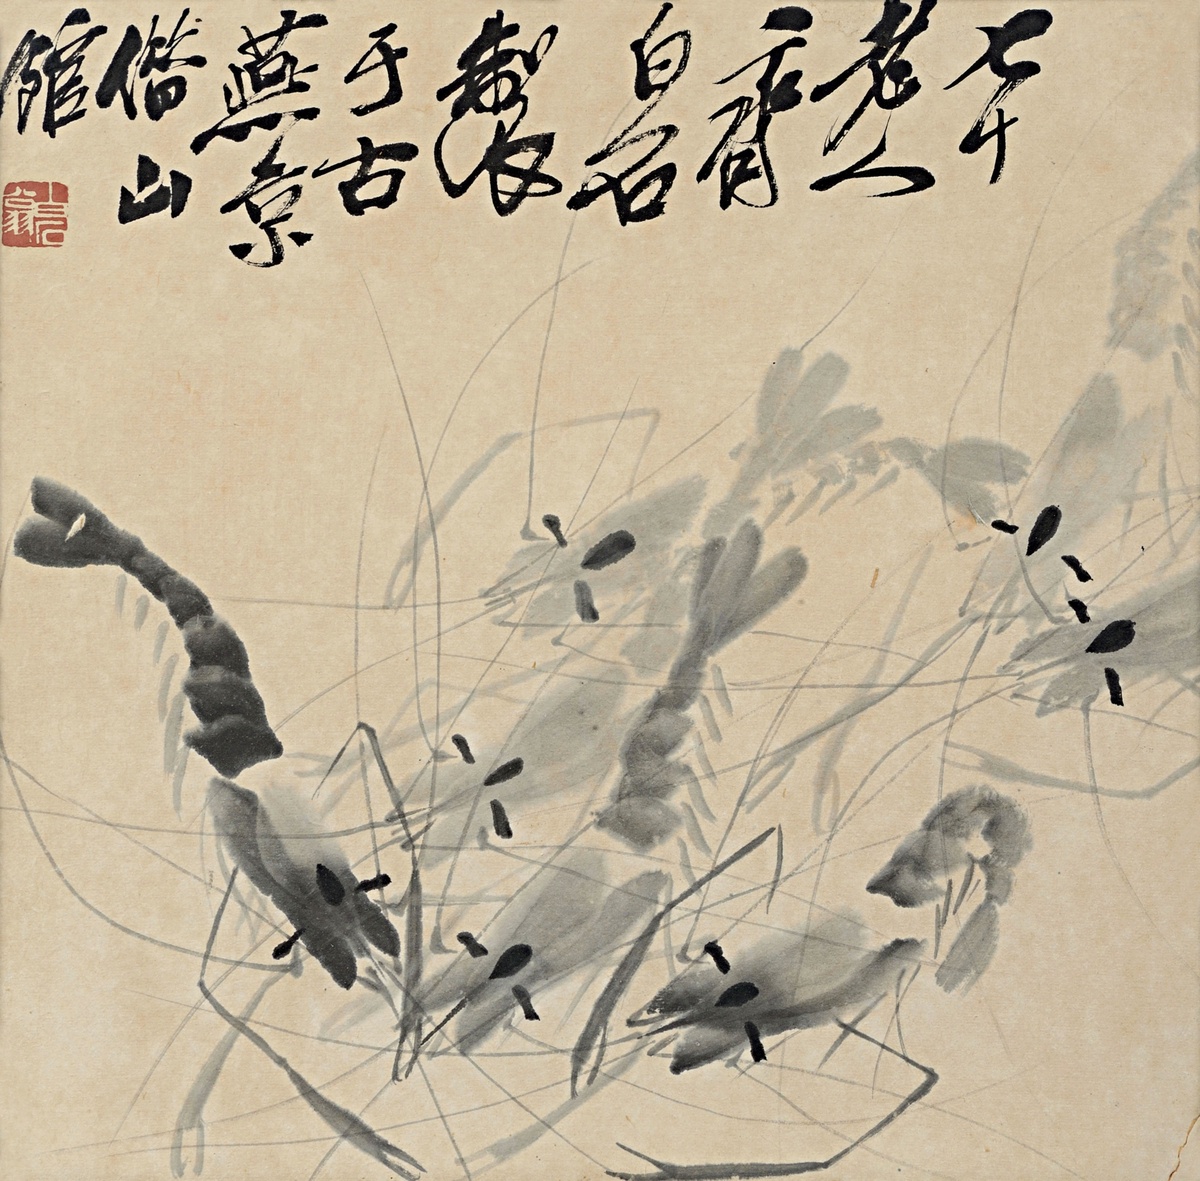 七十
老人
齊
白石
製
于古
燕京
借山
館